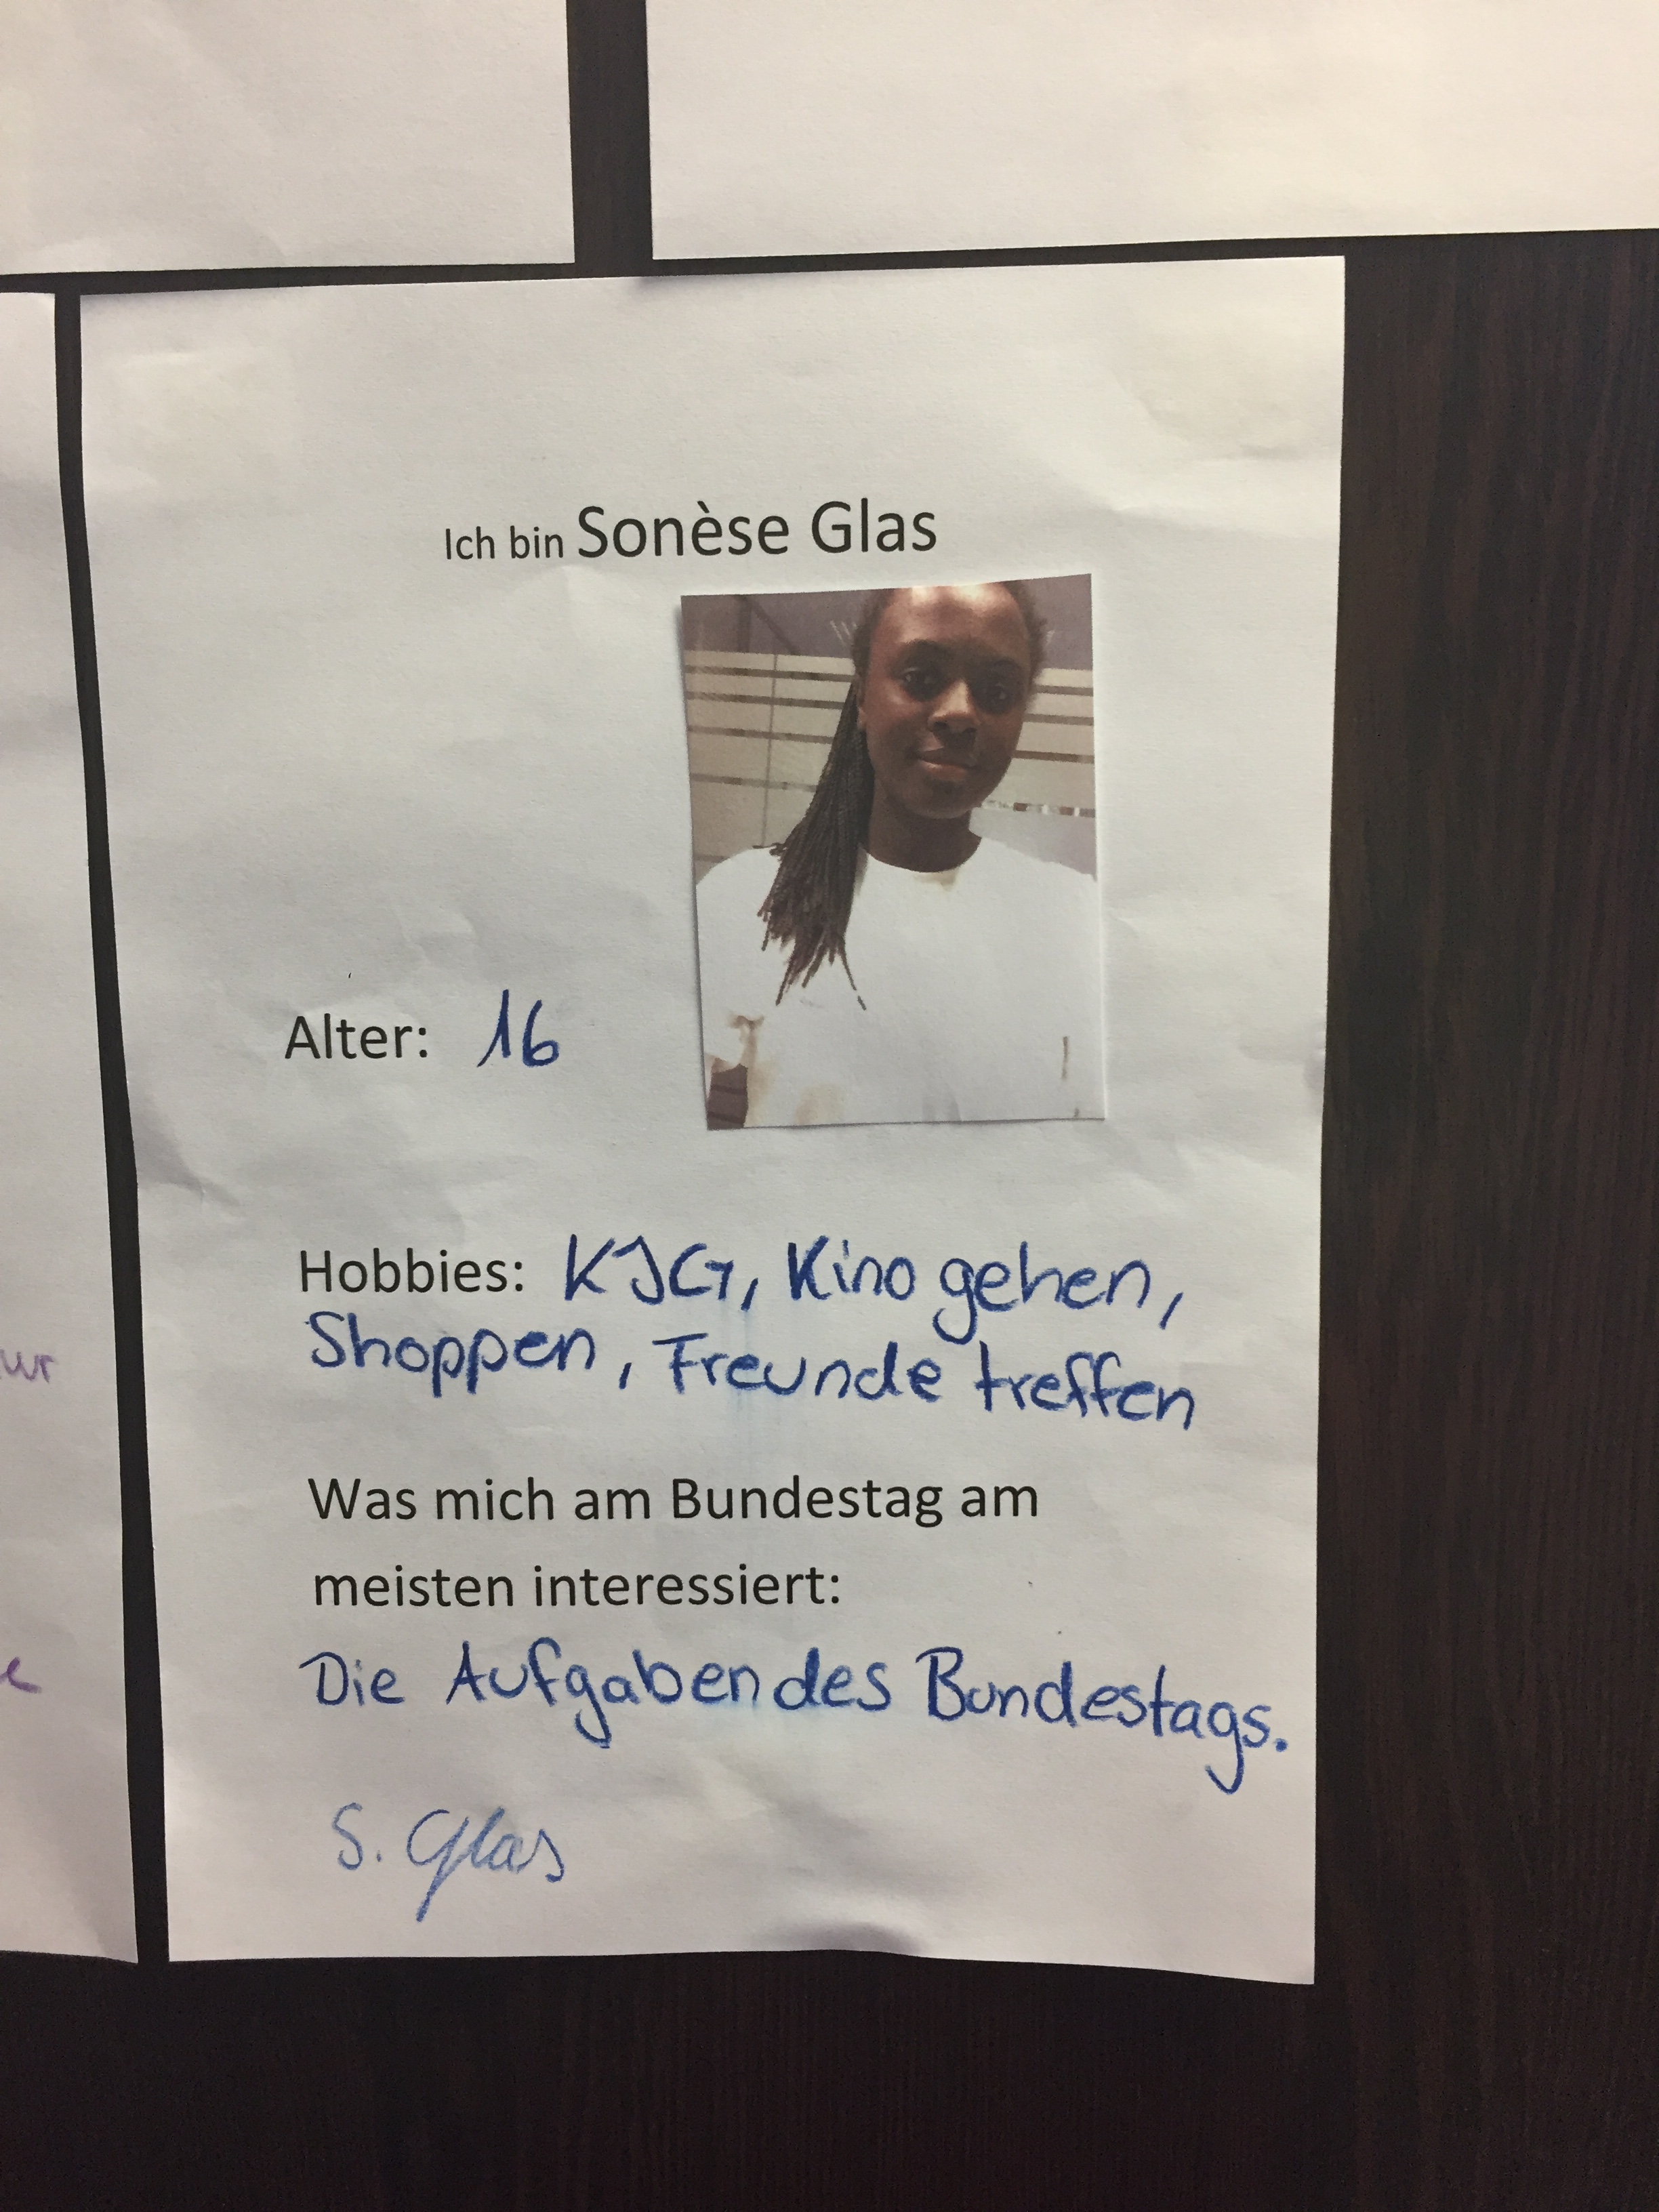 Ich bin Sonèse Glas
Alter: 16
Hobbies: KJG, Kino gehen,
Shoppen, Freunde treffen
Was mich am Bundestag am
meisten interessiert:
Die Aufgaben des Bundestags.
S. Glas